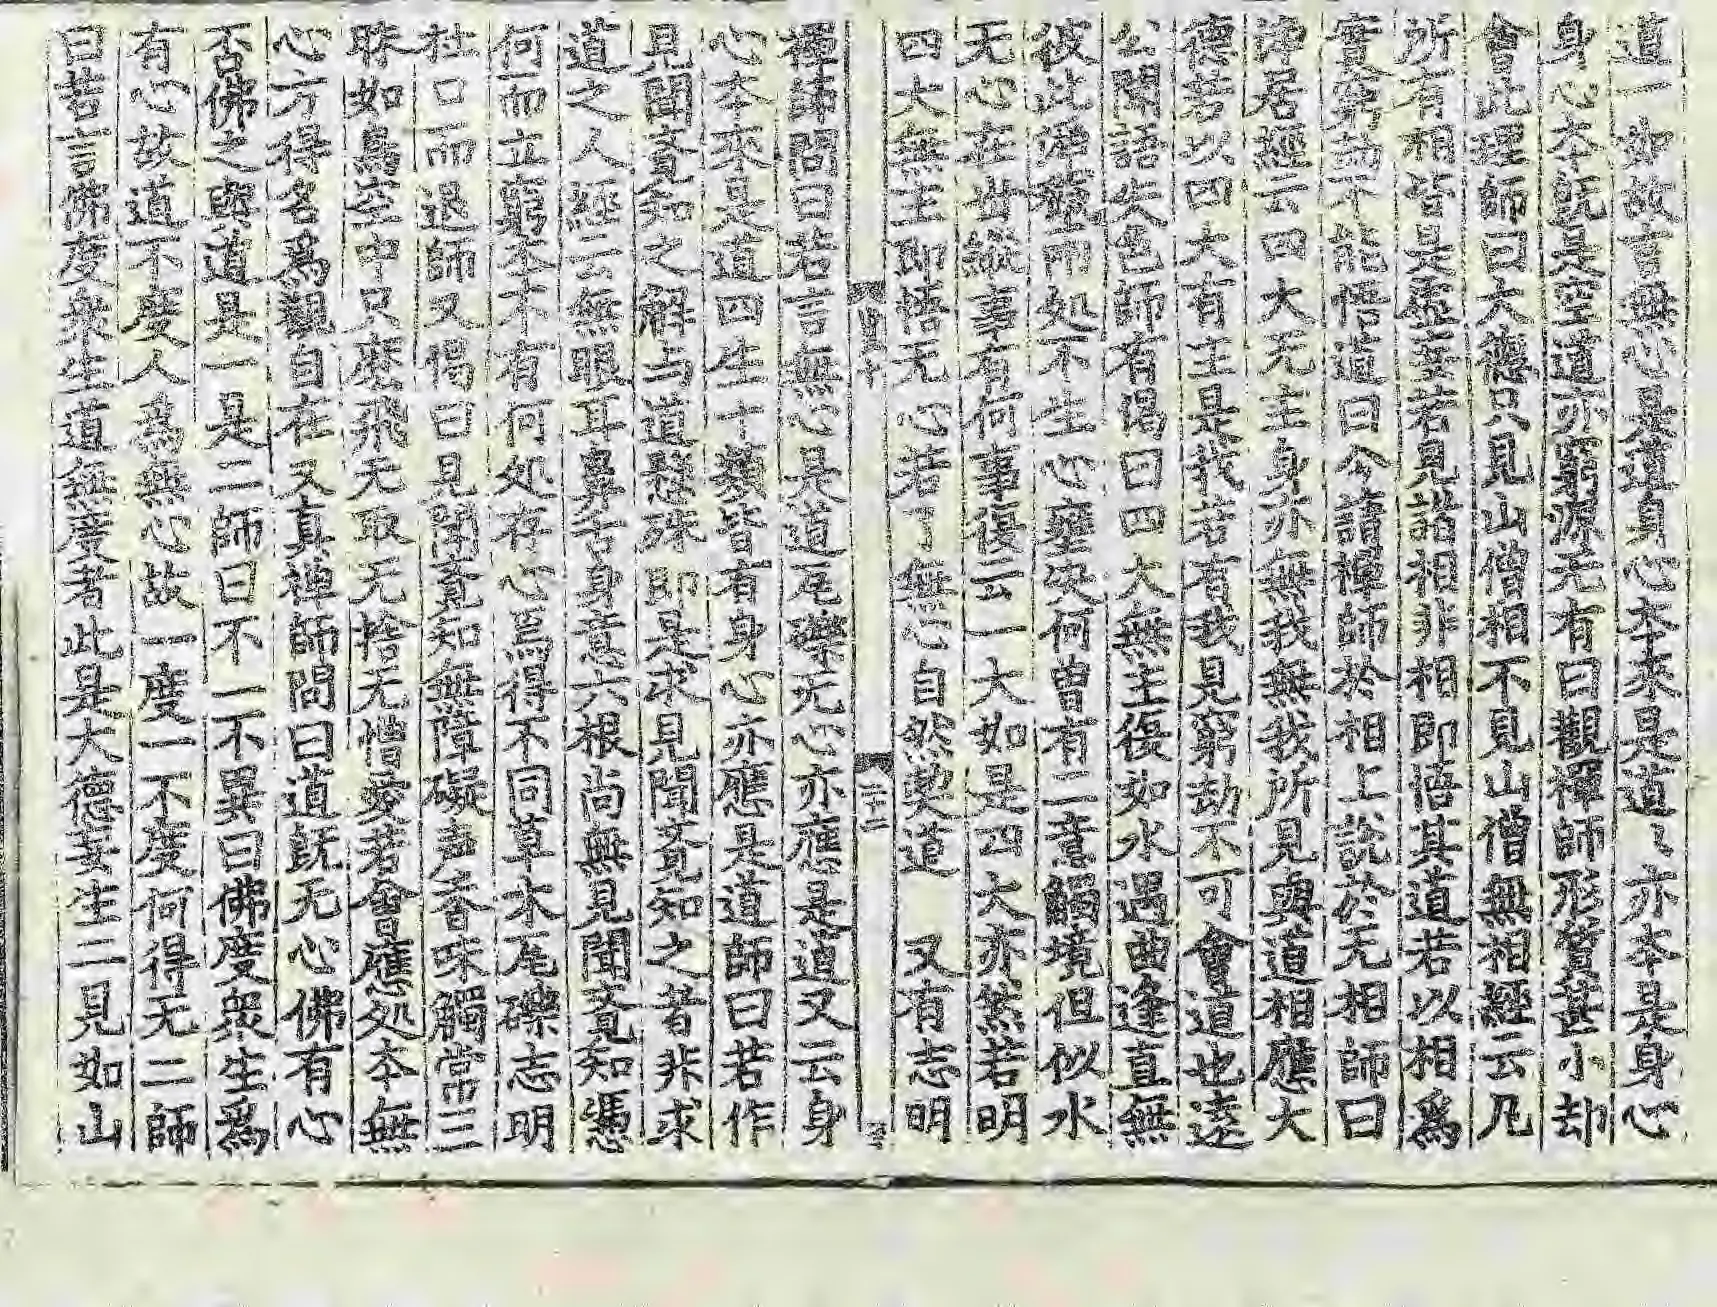 道一如故言無心是道身心本來是道〻亦本是身心
身心本既是空道亦窮源无有曰觀禪師形質甚小却
會此理師曰大德只見山僧相不見山僧無相經云凡
所有相皆是虛妄若見諸相非相即悟其道若以相爲
實窮劫不能悟道曰今請禪師於相上說於无相師曰
淨居經云四大无主身亦無我無我所見與道相應大
德若以四大有主是我若有我見窮劫不可會道也遠
公聞語失色師有偈曰四大無主復如水遇曲逢直無
彼此淨穢兩処不生心壅決何曾有二意觸境但似水
无心在世縱橫有何事復云一大如是四大亦然若明
四大無主即悟无心若了無心自然契道 又有志明
二十二
禪師問曰若言無心是道瓦礫无心亦應是道又云身
心本來是道四生十類皆有身心亦應是道師曰若作
見聞覚知之解与道懸殊即是求見聞覚知之者非求
道之人經云無眼耳鼻舌身意六根尚無見聞覚知憑
何而立窮本不有何処存心焉得不同草木瓦礫志明
杜口而退師又偈曰見聞覚知無障礙声香味觸常三
昧如鳥空中只麽飛无取无捨无憎愛若會應処本無
心方得名爲觀自在又真禪師問曰道既无心佛有心
否佛之與道是一是二師曰不一不異曰佛度衆生爲
有心故道不度人爲無心故一度一不度何得无二師
曰若言佛度衆生道無度者此是大德妄生二見如山